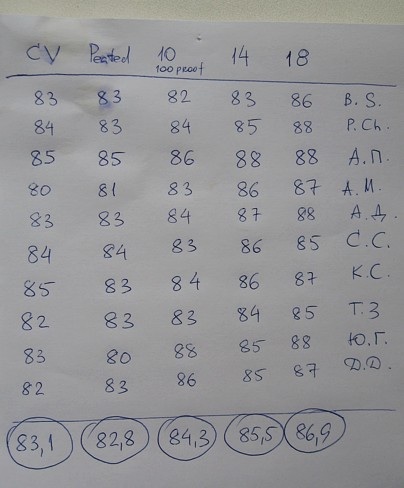 CV Peated 10 14 18
100 proof
83 83 82 83 86 B.S.
84 83 84 85 88 P.Ch.
85 85 86 88 88 А.П.
80 81 83 86 87 А.М.
83 83 84 87 88 А.Д.
84 84 83 86 85 С.С.
85 83 84 86 87 К.С.
82 83 83 84 85 Т.З
83 80 88 85 88 Ю.Г.
82 83 86 85 87 Д.D.
83,1 82,8 84,3 85,5 86,9